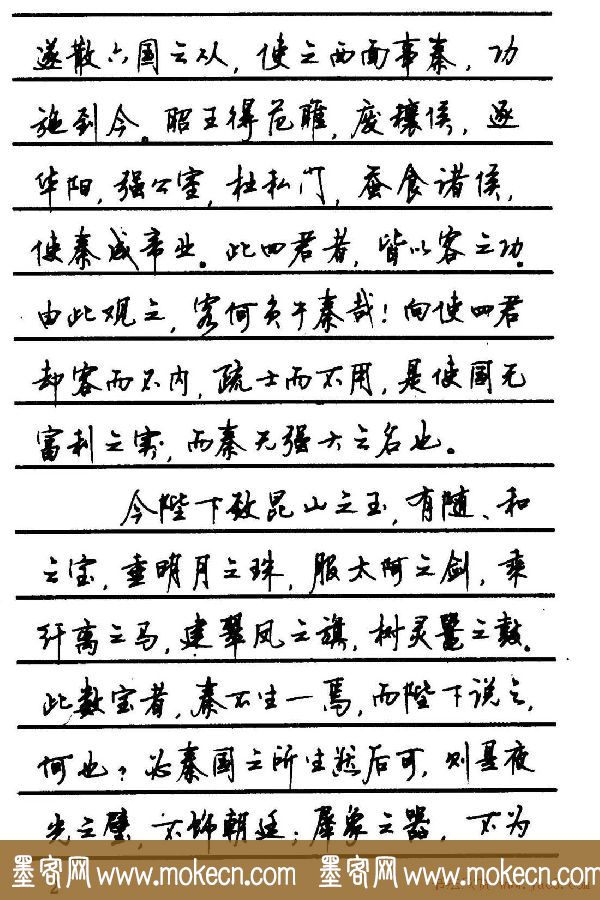 遂散六国之从，使之西面事秦，功
施到今。昭王得范雎，废穰侯，逐
华阳，强公室，杜私门，蚕食诸侯，
使秦成帝业。此四君者，皆以客之功。
由此观之，客何负于秦哉！向使四君
却客而不内，疏士而不用，是使国无
富利之实，而秦无强大之名也。
今陛下致昆山之玉，有随、和
之宝，垂明月之珠，服太阿之剑，乘
纤离之马，建翠凤之旗，树灵鼍之鼓。
此数宝者，秦不生一焉，而陛下说之，
何也？必秦国之所生然后可，则是夜
光之璧，不饰朝廷；犀象之器，不为
墨客网 www.mokecn.com 墨客网 www.mokecn.com